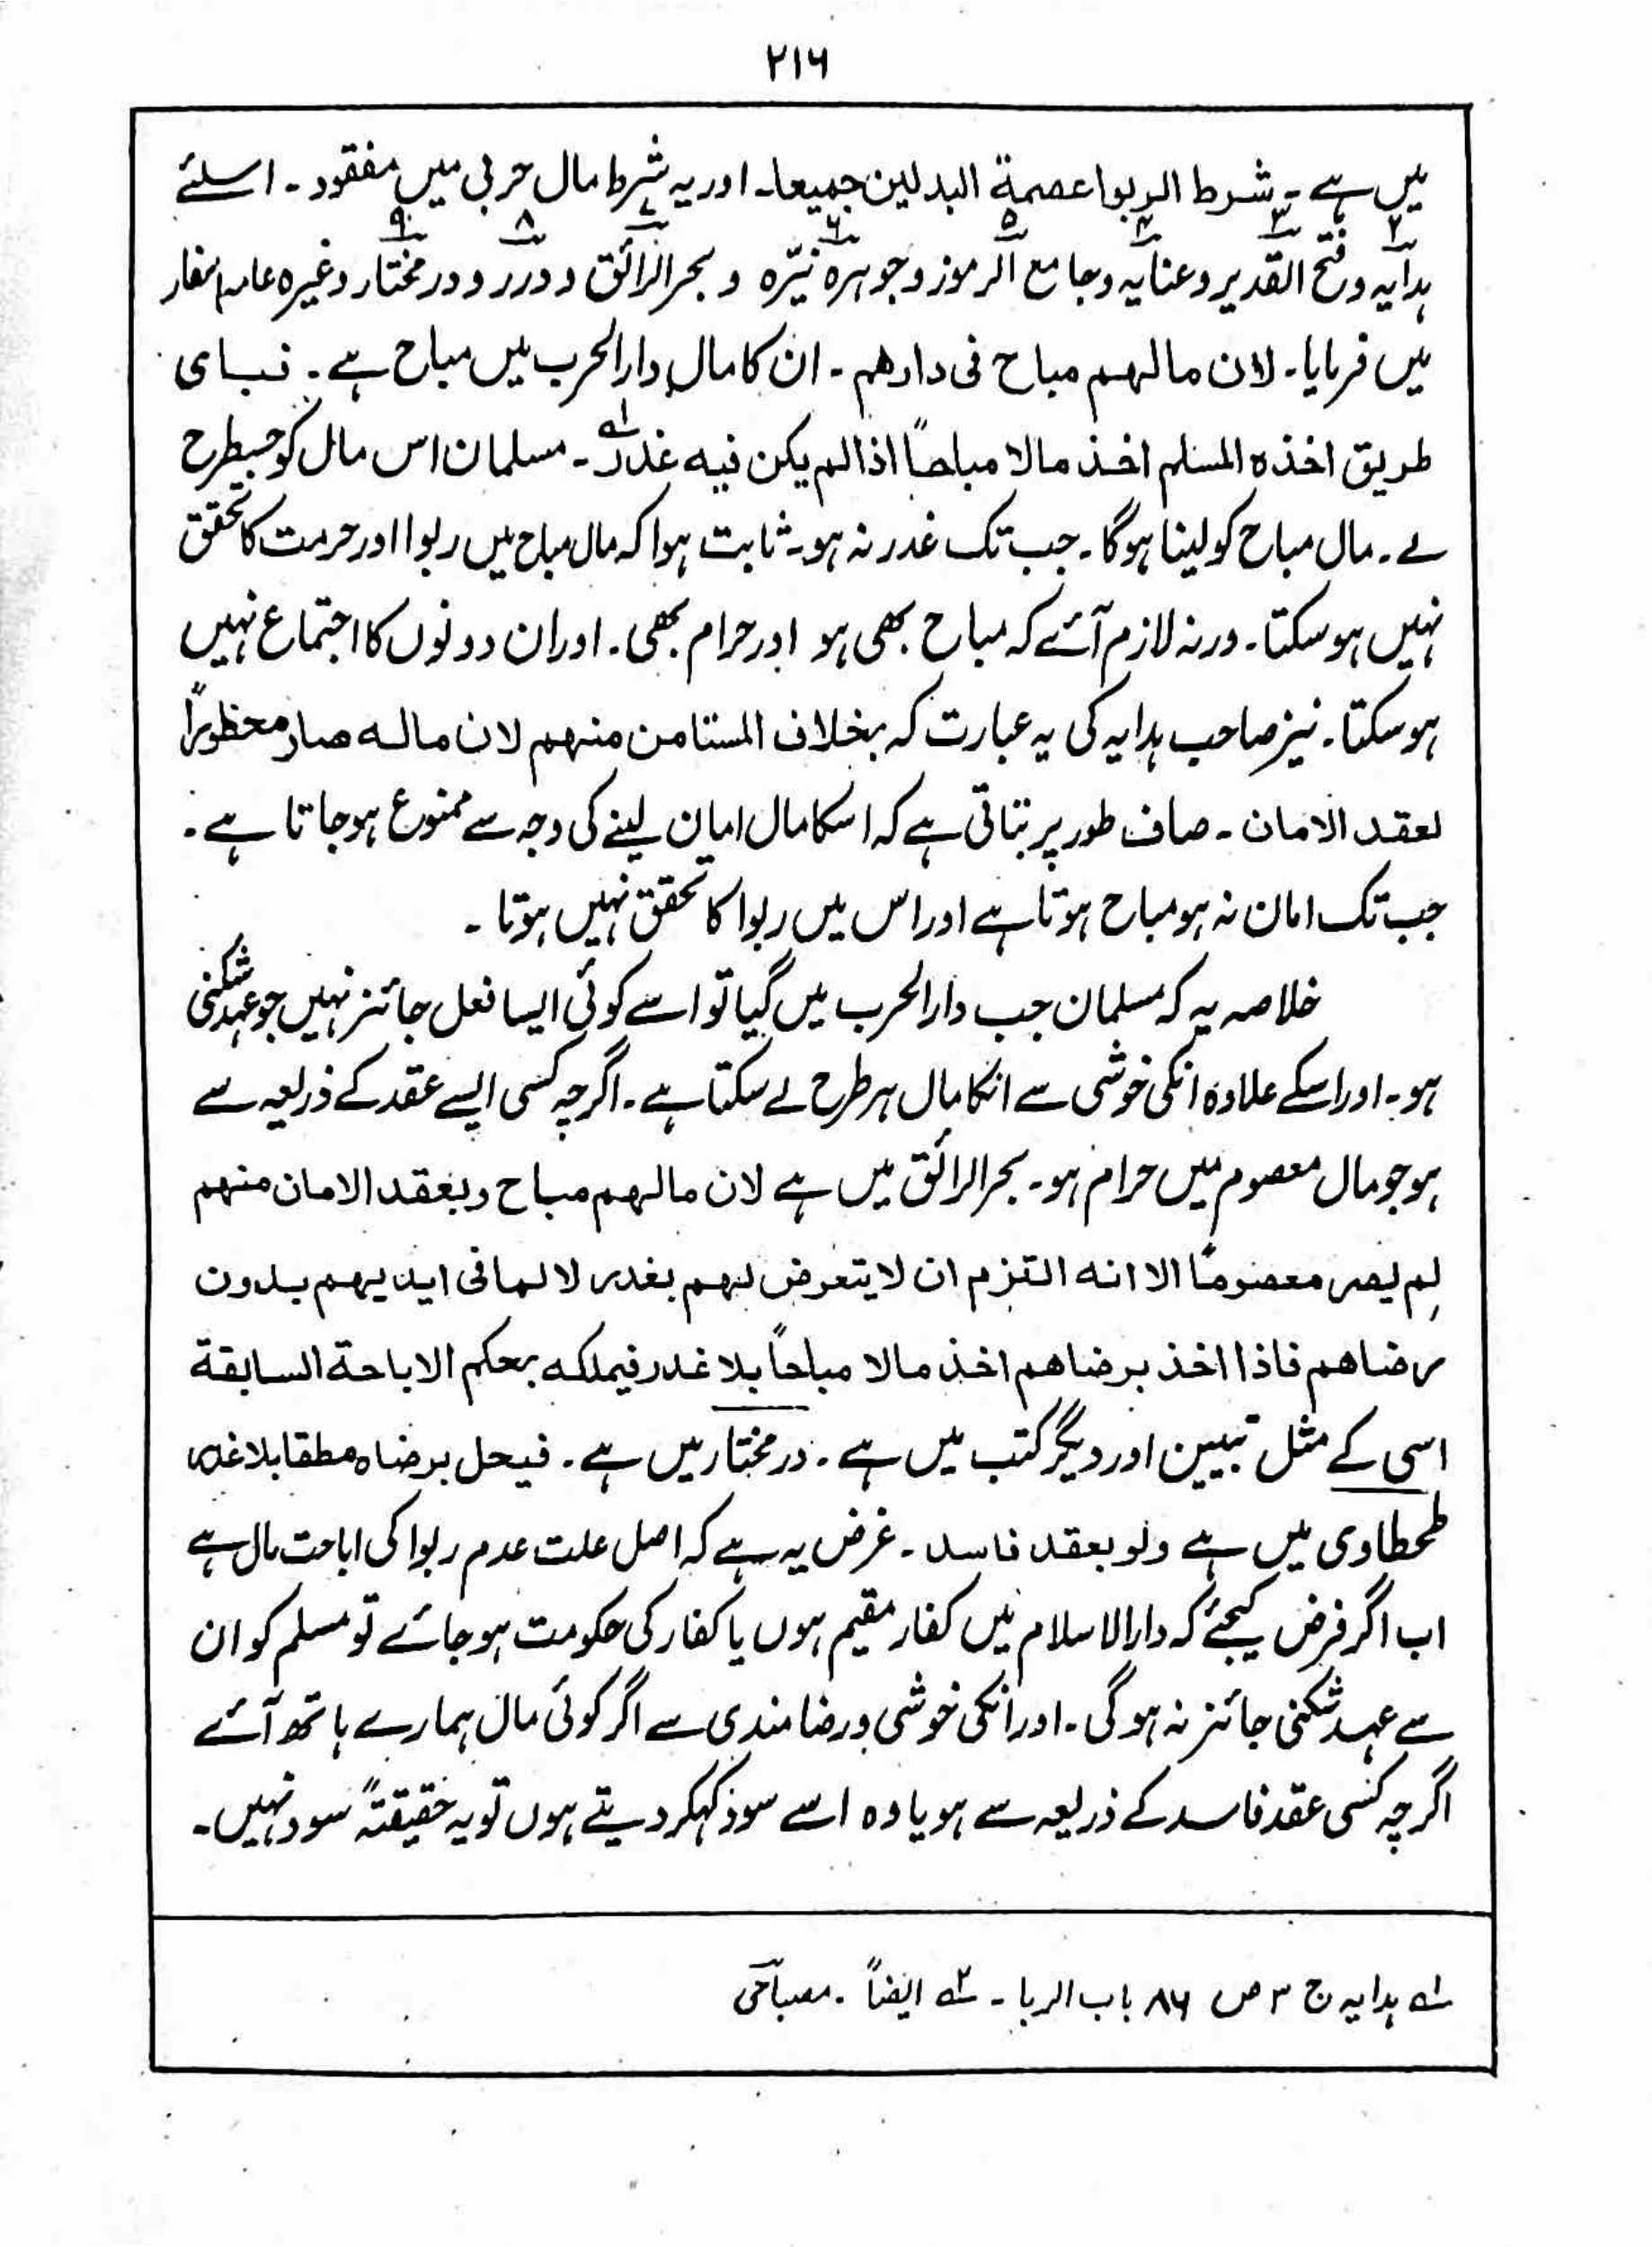 ۲۱۶
میں ہے ۔ شرط الربوا عصمة البدلین جمیعا ۔ اور یہ شرط مال حربی میں مفقود ۔ اسلئے
۲ ۳ ۴ ۵ ۶ ۷ ۸ ۹
ہدایہ و فتح القدیر و عنایہ و جامع الرموز و جوہرہ نیّرہ و بحر الرائق و درر و در مختار وغیرہ عامہ اسفار
میں فرمایا۔ لان مالہم مباح فی دارھم ۔ ان کا مال دارالحرب میں مباح ہے ۔ فبای
طریق اخذہ المسلم اخذ مالا مباحاً اذا لم یکن فیہ غدر ۱؎ ۔ مسلمان اس مال کو جسطرح
لے ۔ مال مباح کو لینا ہوگا ۔ جب تک غدر نہ ہو ۔ ثابت ہوا کہ مال مباح میں ربوا اور حرمت کا تحقق
نہیں ہوسکتا ۔ ورنہ لازم آئے کہ مباح بھی ہو اور حرام بھی ۔ اور ان دونوں کا اجتماع نہیں
ہوسکتا ۔ نیز صاحب ہدایہ کی یہ عبارت کہ بخلاف المستامن منہم لان مالہ صار محظوراً
لعقد الامان ۔ صاف طور پر بتاتی ہے کہ اسکا مال امان لینے کی وجہ سے ممنوع ہوجاتا ہے ۔
جب تک امان نہ ہو مباح ہوتا ہے اور اس میں ربوا کا تحقق نہیں ہوتا ۔
خلاصہ یہ کہ مسلمان جب دارالحرب میں گیا تو اسے کوئی ایسا فعل جائز نہیں جو عہد شکنی
ہو ۔ اور اسکے علاوہ انکی خوشی سے انکا مال ہر طرح لے سکتا ہے ۔ اگرچہ کسی ایسے عقد کے ذریعہ سے
ہو جو مال معصوم میں حرام ہو ۔ بحر الرائق میں ہے لان مالہم مباح وبعقد الامان منہم
لم یصر معصوماً الا انہ التزم ان لا یتعرض لہم بغدر لا لما فی ایدیہم بدون
رضاھم فاذا اخذ برضاھم اخذ مالا مباحاً بلا غدر فیملکہ بحکم الاباحة السابقة
اسی کے مثل تبیین اور دیگر کتب میں ہے ۔ در مختار میں ہے ۔ فیحل برضاہ مطقا بلا غدر
طحطاوی میں ہے ولو بعقد فاسد ۔ غرض یہ ہے کہ اصل علت عدم ربوا کی اباحت مال ہے
اب اگر فرض کیجئے کہ دارالاسلام میں کفار مقیم ہوں یا کفار کی حکومت ہوجائے تو مسلم کو ان
سے عہد شکنی جائز نہ ہوگی ۔ اور انکی خوشی ورضامندی سے اگر کوئی مال ہمارے ہاتھ آئے
اگرچہ کسی عقد فاسد کے ذریعہ سے ہو یا وہ اسے سود کہکر دیتے ہوں تو یہ حقیقتہً سود نہیں ۔
۱؎ ہدایہ ج ۳ ص ۸۶ باب الربا ۔ ۲؎ ایضاً ۔ مصباحی